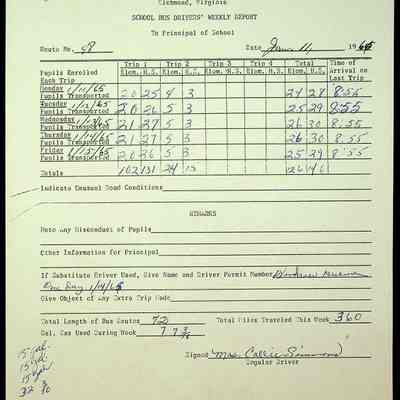 Richmond, Virginia
SCHOOL BUS DRIVERS' WEEKLY REPORT
To Principal of School
Route No. 98 Date 11, 1965
Trip 1 Trip 2 Trip 3 Trip 4 Total Time of
Pupils Enrolled Elem. H.S. Elem. H.S. Elem. H.S. Elem. H.S. Elem. H.S. Arrival on
Each Trip Last Trip
Monday 1/11/65
Pupils Transported 20 25 4 3 24 28 8:55
Tuesday 1/12/65
Pupils Transported 20 26 5 3 25 29 8:55
Wednesday 1/13/65
Pupils Transported 21 27 5 3 26 30 8:55
Thursday 1/14/65
Pupils Transported 21 27 5 3 26 30 8:55
Friday 1/15/65
Pupils Transported 20 26 5 3 25 29 8:55
Totals 102 131 24 15 126 146
Indicate Unusual Road Conditions
REMARKS
Note Any Misconduct of Pupils
Other Information for Principal
If Substitute Driver Used, Give Name and Driver Permit Number
One Day 1/14/65
Give Object of Any Extra Trip Made
Total Length of Bus Routes 72 Total Miles Traveled This Week 360
Gal. Gas Used During Week 77 3/10
Signed Mrs. Callie Simmons
Regular Driver
15 gal
15 gal
15 gal
32 3/10